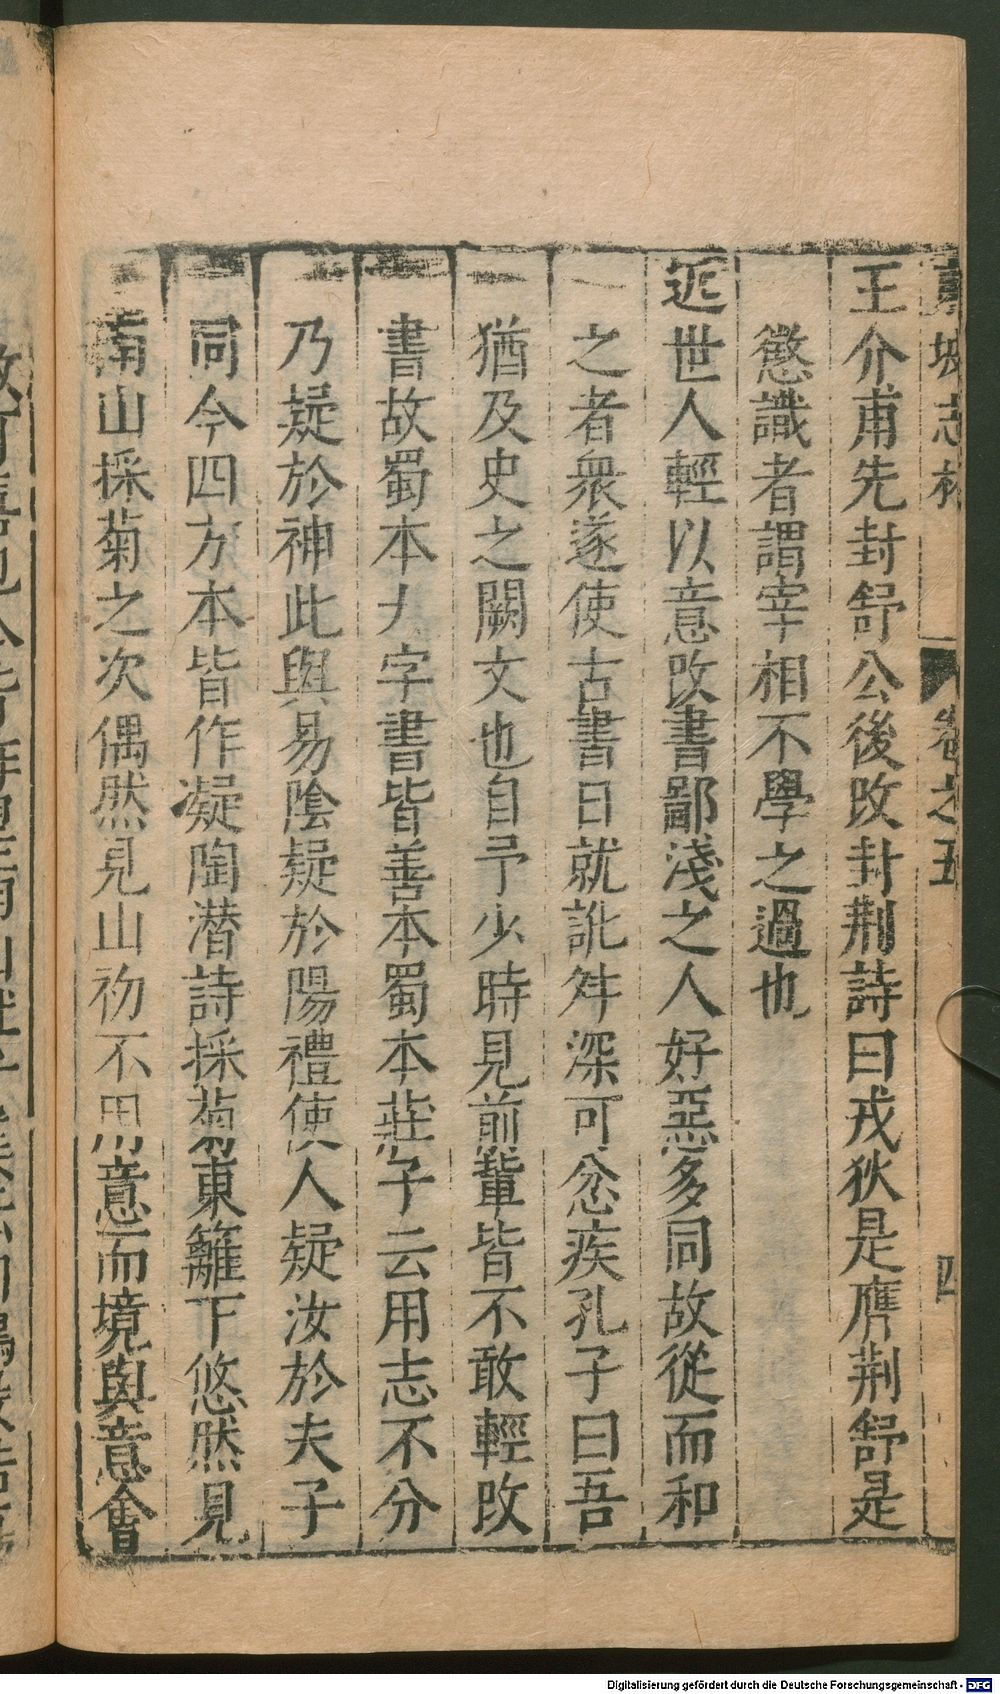 東坡志林 卷之五 四
王介甫先封舒公後改封荆詩曰戎狄是膺荆舒是
懲識者謂宰相不學之過也
近世人輕以意改書鄙淺之人好惡多同故從而和
之者衆遂使古書日就訛舛深可忿疾孔子曰吾
猶及史之闕文也自予少時見前輩皆不敢輕改
書故蜀本大字書皆善本蜀本莊子云用志不分
乃疑於神此與易陰疑於陽禮使人疑汝於夫子
同今四方本皆作凝陶潜詩採菊東籬下悠然見
南山採菊之次偶然見山初不用意而境與意會
Digitalisierung gefördert durch die Deutsche Forschungsgemeinschaft - DFG